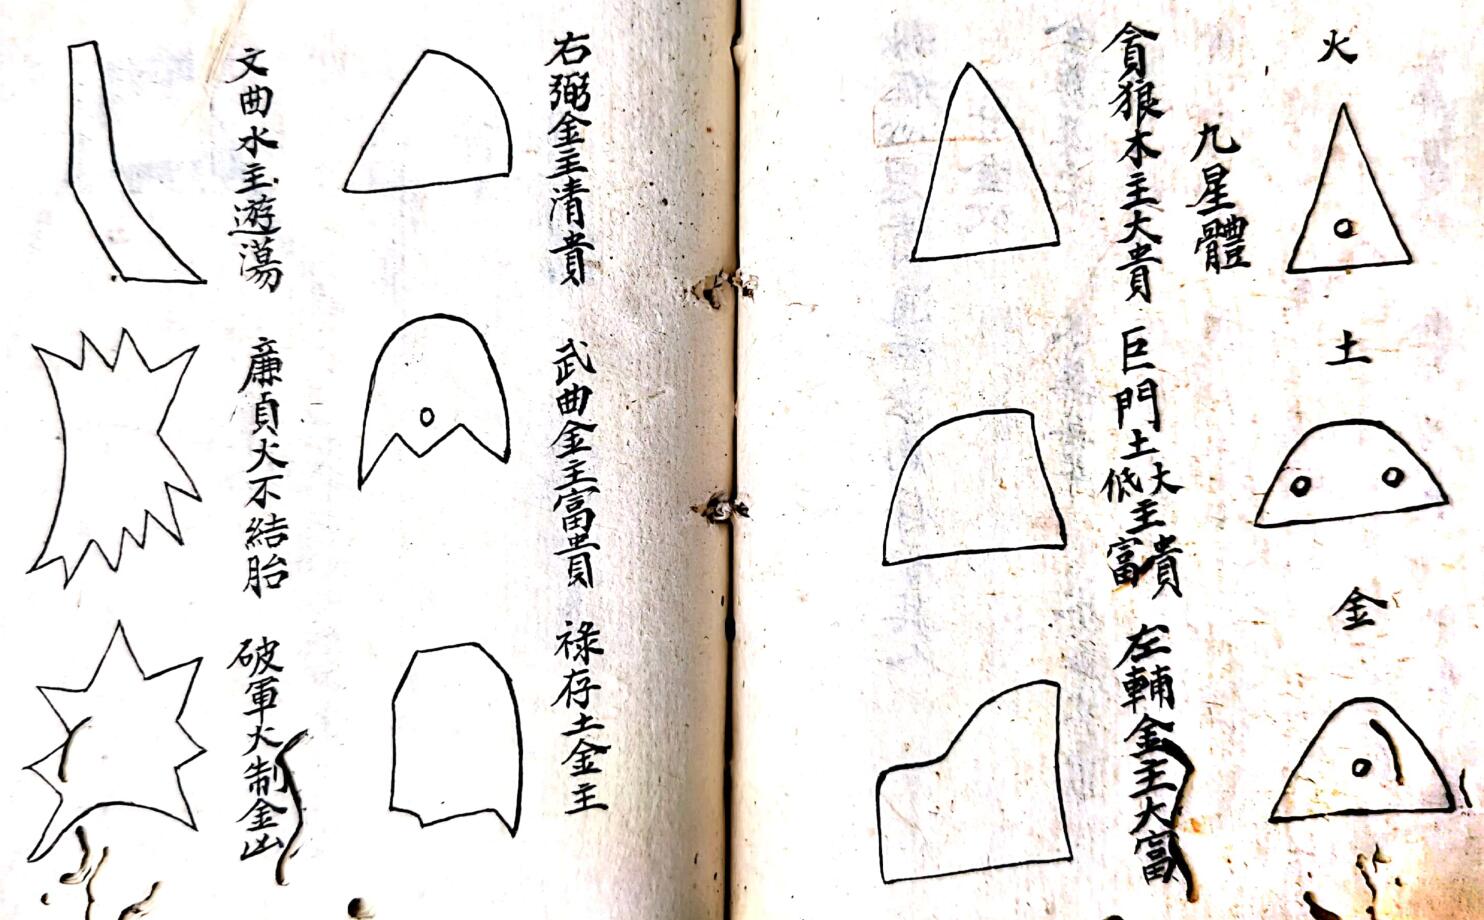 火
土
金
九星體
貪狼木主大貴
巨門土大低主富貴
左輔金主大富
右弼金主清貴
武曲金主富貴
祿存土金主
文曲水主遊蕩
廉貞火不結胎
破軍火制金凶